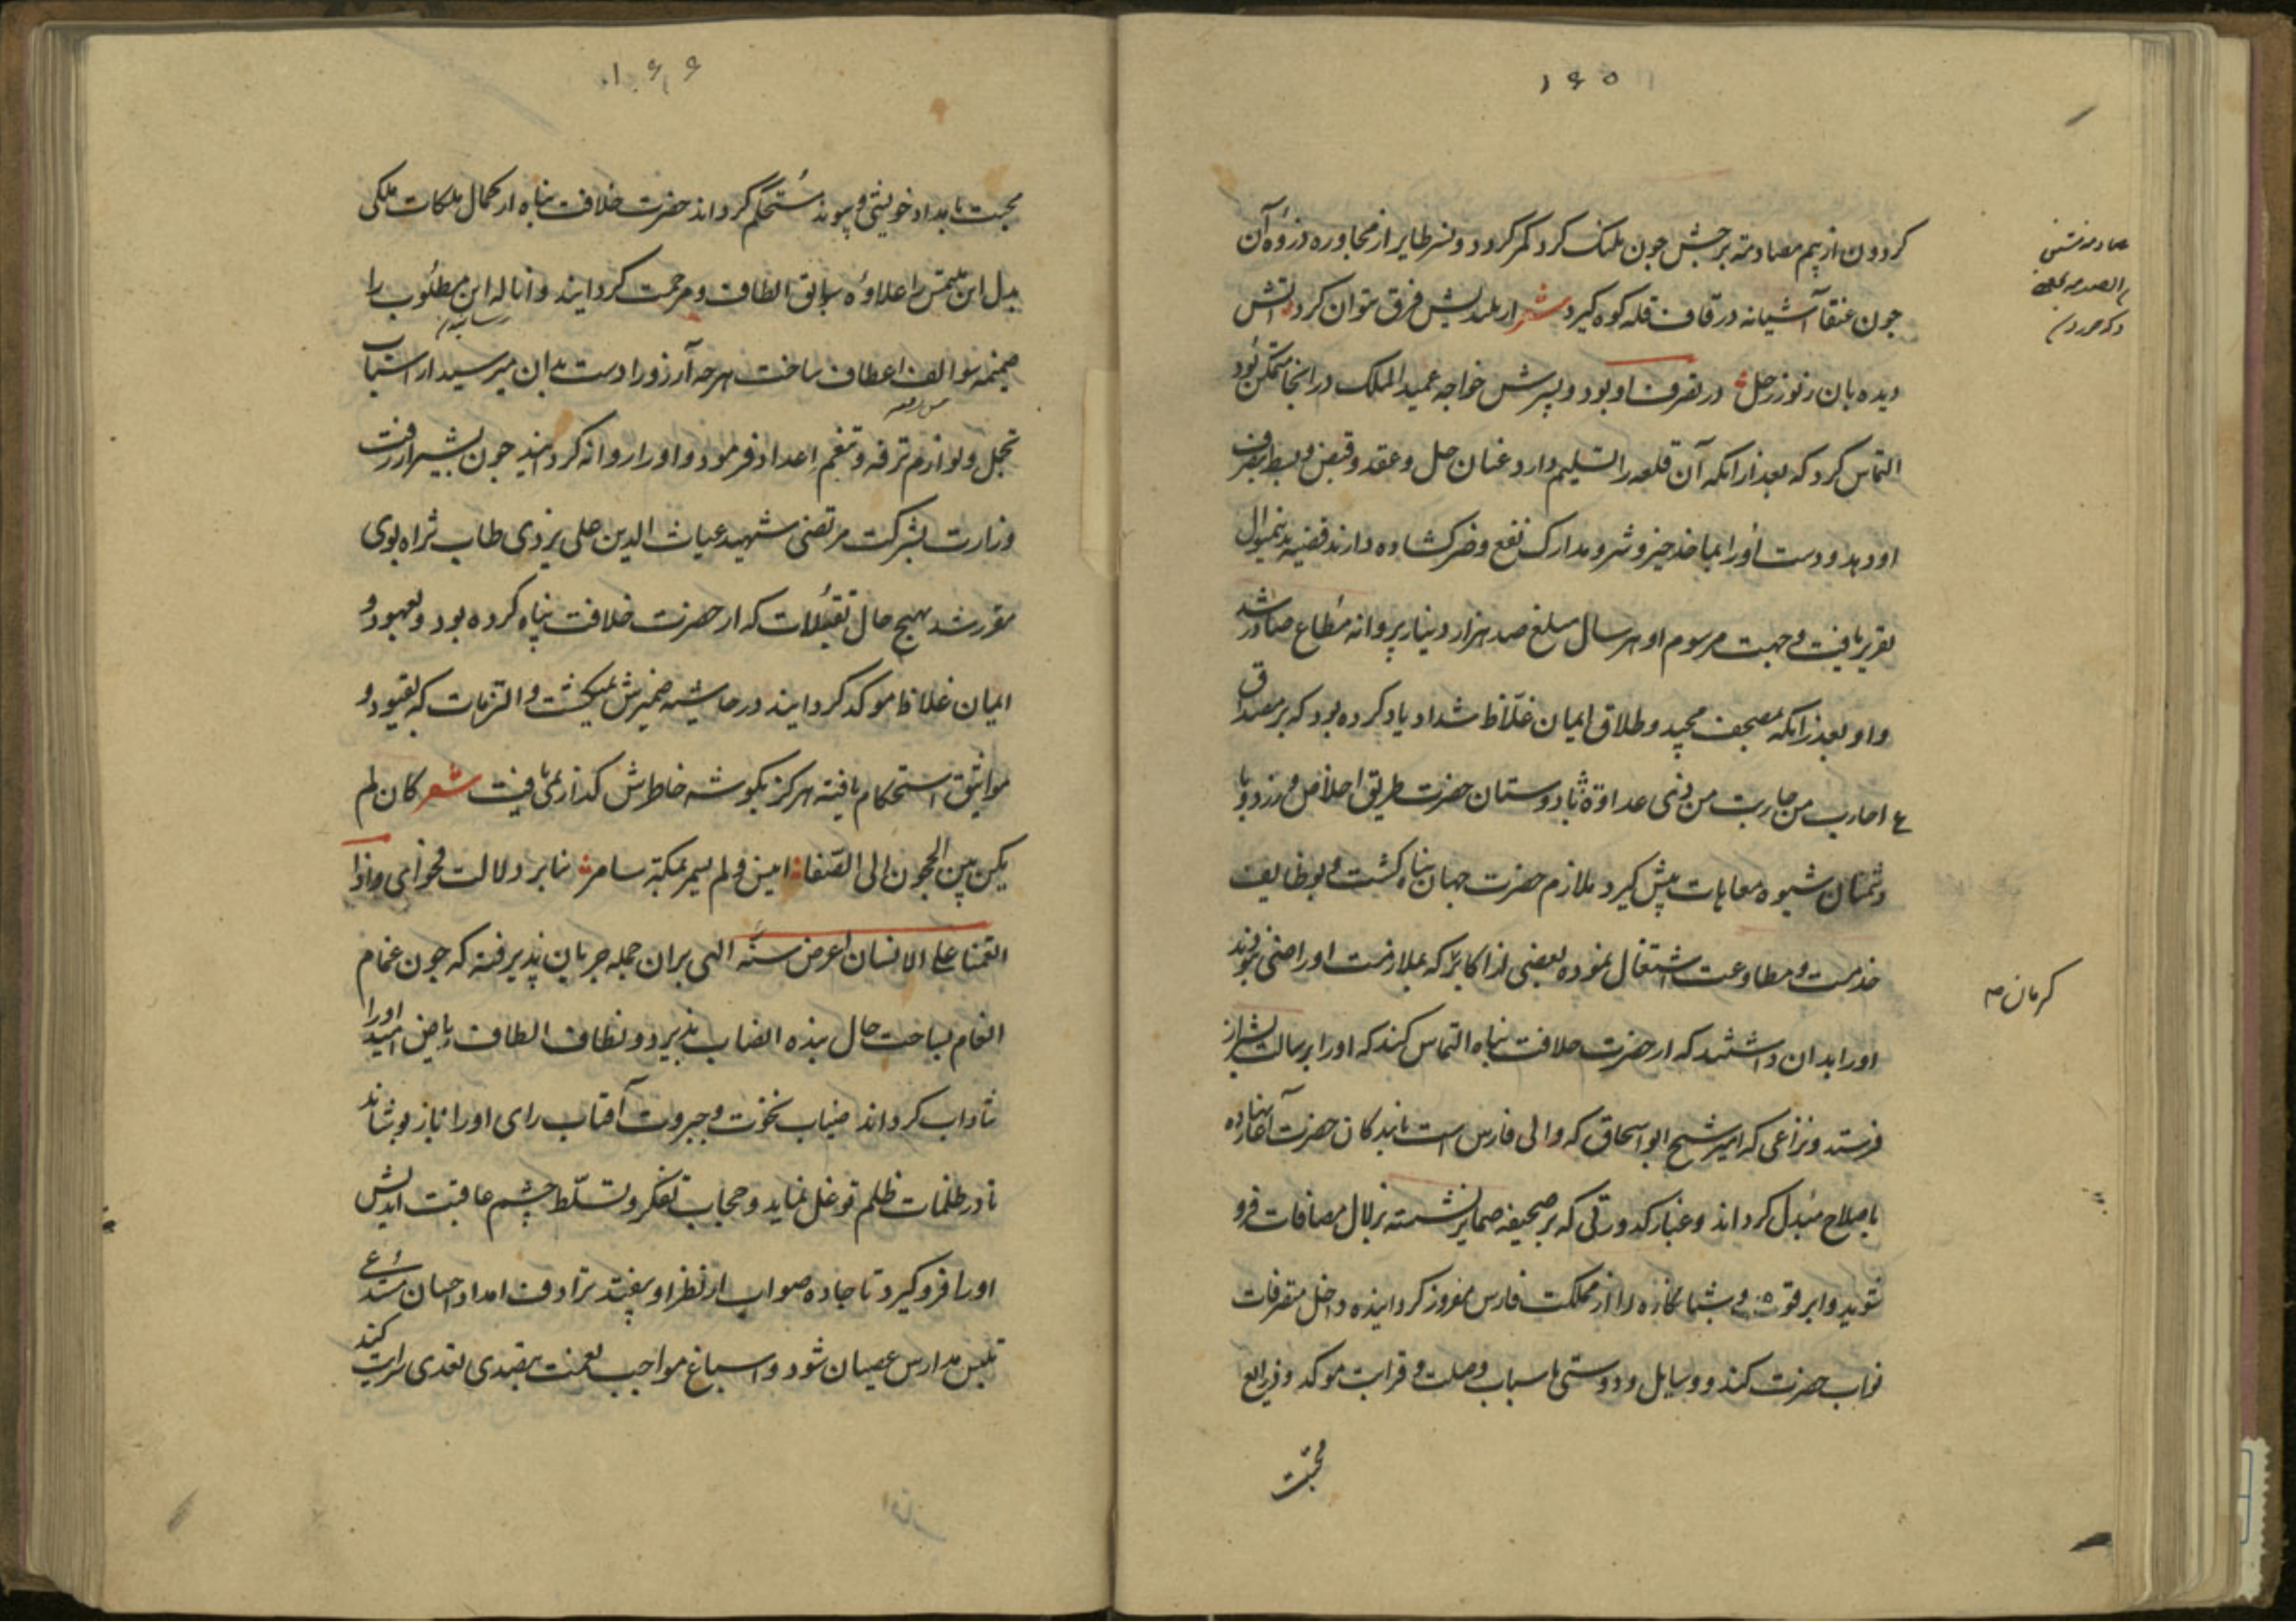 ۱۶۵
کردون از بیم مصادمهٔ برجش جون پلنک کرد کمر کردد و نسر طایر از مجاوره ذروهٔ آن
جون عنقا آشیانه در قاف قله کوه کیرد شعر از بلندیش فرق نتوان کرد آتش
دیده بان ز نور زحل در تصرف او بود و پسرش خواجه عمید الملک در انجا متمکن بود
التماس کرد که بعد از انکه آن قلعه را تسلیم دارد عنان حل و عقد و قبض و بسط بتصرف
او دهد و دست او را بماخذ خیر و شر و مدارک نفع و ضر کشاده دارند قضیه بدینموال
تقریر یافت و جهت مرسوم او هر سال مبلغ صد هزار دینار پروانه مطاع صادر شد
و او بعد از انکه بمصحف مجید و طلاق ایمان غلاظ شداد یاد کرده بود که بر مصداق
ع احارب من حاربت من ذی عداوة با دوستان حضرت طریق اخلاص ورزد و با
دشمنان شیوه معادات پیش کیرد ملازم حضرت جهان پناه کشت و بوظایف
خدمت و مطاوعت اشتغال نموده بعضی از اکابر که بملازمت او راضی نبودند
او را بدان داشتند که از حضرت خلافت پناه التماس کند که او را برسالت بشیراز
فرستد و نزاعی که امیر شیخ ابو اسحاق که والی فارس است با بندکان حضرت آغاز نهاده
باصلاح مبدل کرداند و غبار کدورتی که بر صحیفه ضمایر نشسته بزلال مصافات فرو
شوید و ابرقوه و شبانکاره را از مملکت فارس مفروز کردانیده داخل متصرفات
نواب حضرت کند و وسایل و دوستی باسباب وصلت و قرابت موکد و ذرایع
محبت
کرمان
۱۶۶
محبت بامداد خویشی و پیوند مستحکم کرداند حضرت خلافت پناه از کمال ملکات ملکی
بذل این ملتمس را علاوه سوابق الطاف و مرحمت کردانید و انالهٔ این مطلوب را
ضمیمه سوالف اعطاف ساخت هر چه آرزو را دست بدان میرسید از اسباب
تجمل و لوازم ترفه و تنعم اعداد فرمود و او را روانه کردانید جون بشیراز رفت
وزارت بشرکت مرتضی شهید غیاث الدین علی یزدی طاب ثراه بوی
مقرر شد بهیج حال تقبلات که از حضرت خلافت پناه کرده بود و بعهود و
ایمان غلاظ موکد کردانید در حاشیه ضمیرش نمیکشت و التزامات که بقیود و
مواثیق استحکام یافته هرکز بکوشه خاطرش کذار نمی یافت شعر کان لم
یکن بین الحجون الی الصفا انیس و لم یسمر بمکة سامر بنابر دلالت فحوای و اذا
انعمنا علی الانسان اعرض سنة الهی بران جمله جریان پذیرفته که جون غمام
انعام بساحت حال بنده انصاب پذیرد و نطاف الطاف ریاض امید او را
شاداب کرداند ضباب نخوت و جبروت آفتاب رای او را باز پوشاند
تا در ظلمات ظلم توغل نماید و حجاب تفکر و تسلط چشم عاقبت اندیش
او را فرو کیرد تا جاده صواب از نظر او بیفتد ترادف امداد احسان مستدعی
تلبس مدارس عصیان شود و اسباغ مواجب نعمت مقتدی تعدی
کند